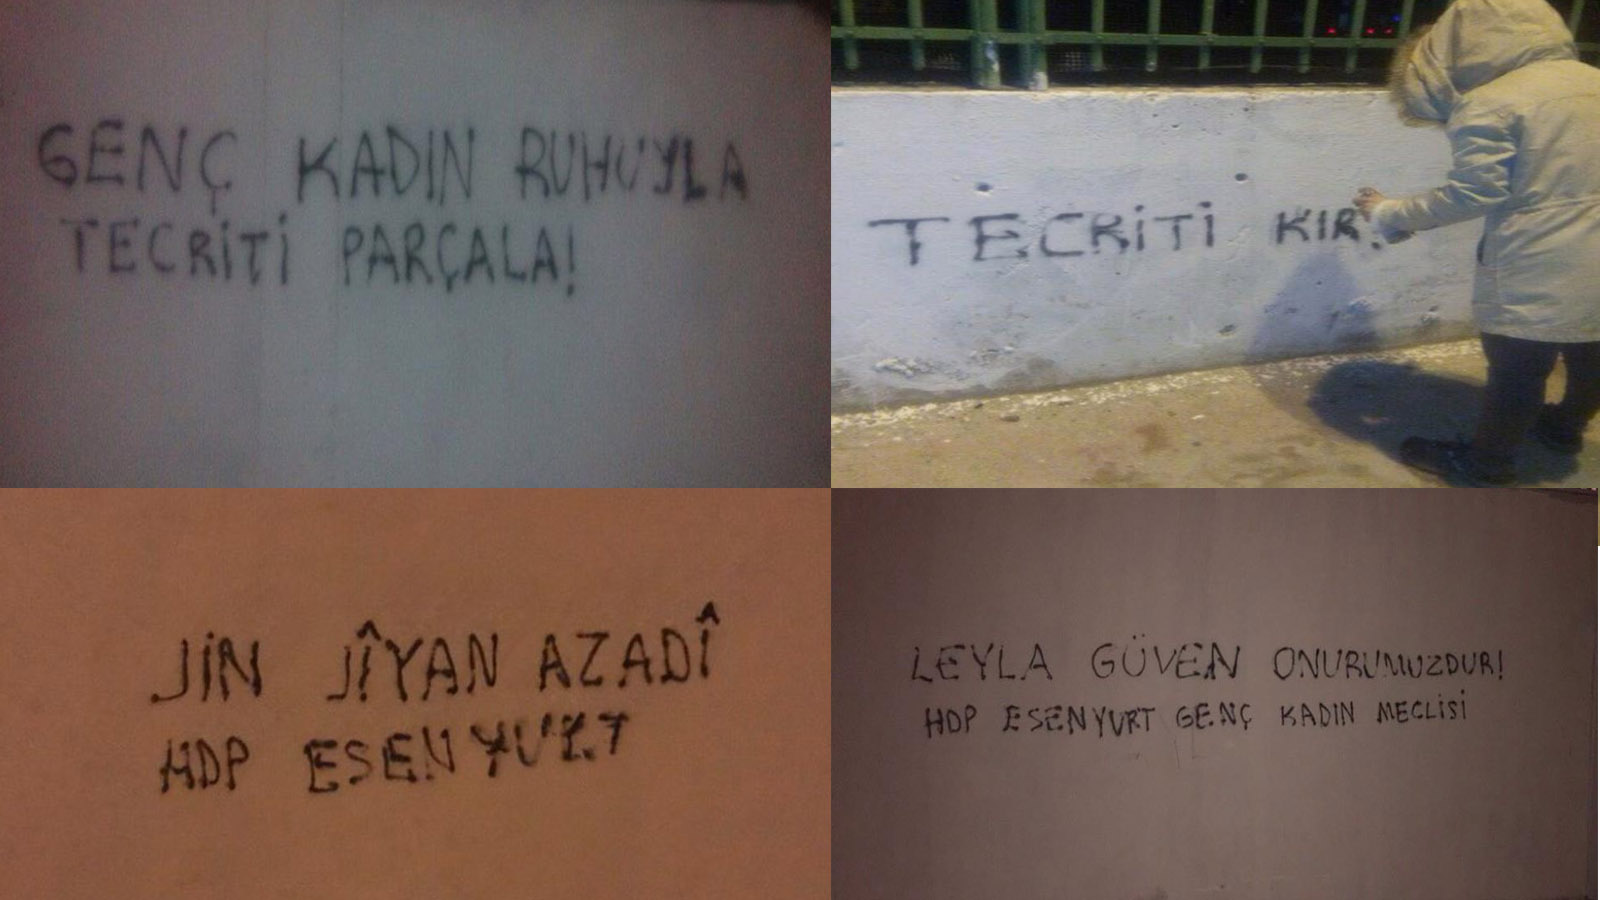 GENÇ KADIN RUHUYLA
TECRİTİ PARÇALA!
TECRİTİ KIR!
JİN JÎYAN AZADÎ
HDP ESENYURT
LEYLA GÜVEN ONURUMUZDUR!
HDP ESENYURT GENÇ KADIN MECLİSİ